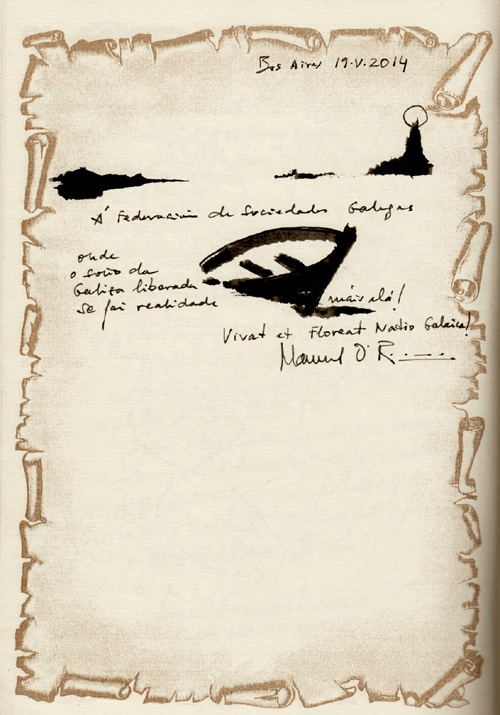 Bos Aires 19·V·2014
Á Federación de Sociedades Galegas
onde
o soño da
Galiza liberada
se fai realidade
máis alá!
Vivat et Floreat Natio Galaica!
Manuel O' R